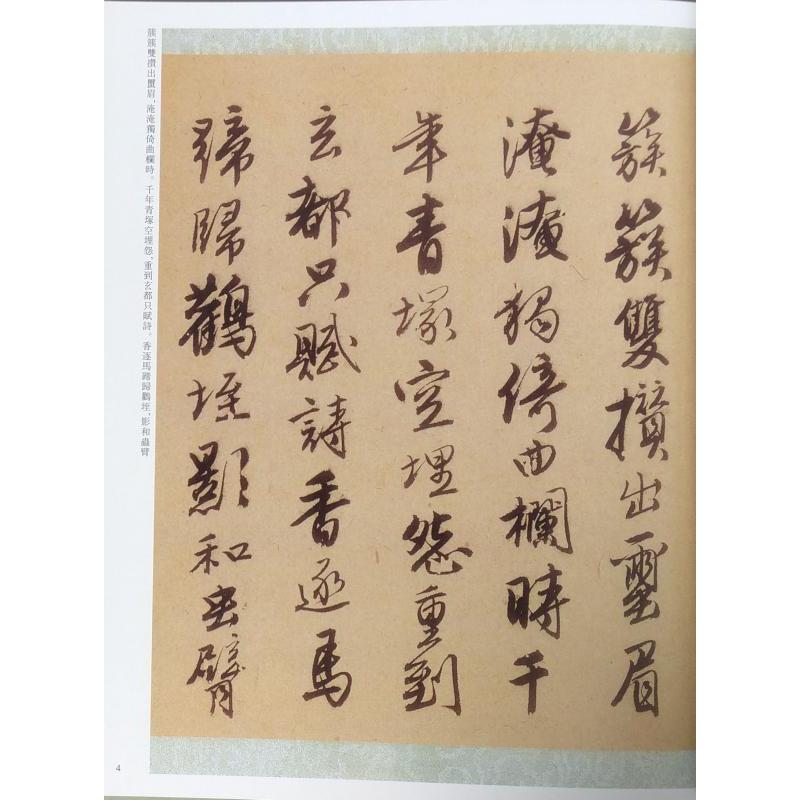 簇簇雙攢出蠒眉
淹淹獨倚曲欄時千
年青塚空埋怨重到
玄都只賦詩香逐馬
蹄歸鸛垤影和虫臂
簇簇雙攢出蠒眉，淹淹獨倚曲欄時。千年青塚空埋怨，重到玄都只賦詩。香逐馬蹄歸鸛垤，影和蟲臂
4